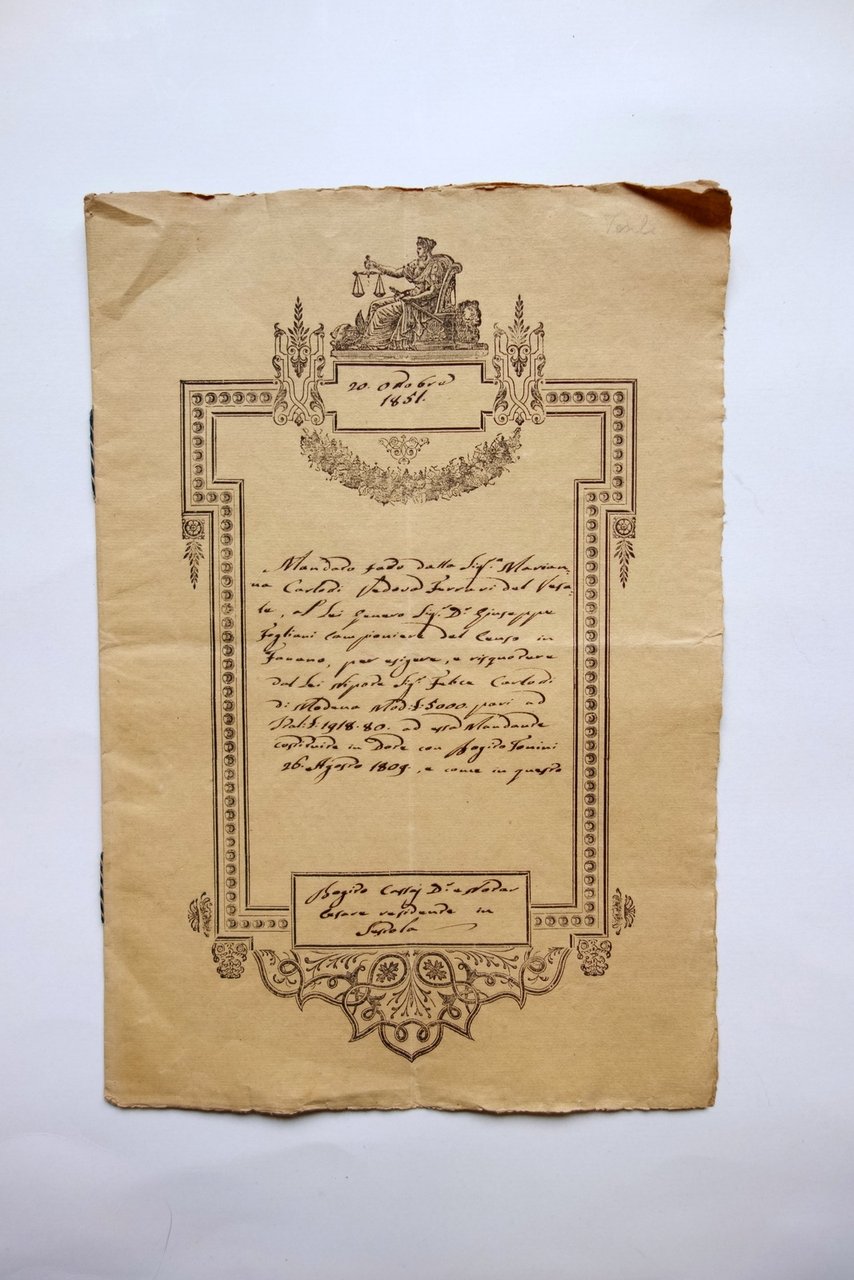 20. Ottobre
1851.
Mandato fatto dalla Sig.ª Marian-
na Carlodi Vedova Ferrari del Vesa-
le, al Lei Genero Sig.r D.r Giuseppe
Fogliani Campioniere del Censo in
Fanano, per esigere, e risquotere
dal Lei Nipote Sig.r Felice Carlodi
di Modena Mod.i £ 5000 pari ad
Ital.i £ 1918.80. ad essa Mandante
costituite in Dote con Rogito Tonini
26. Agosto 1809, e come in questo
Rogito D.r e Notar
Cesare residente in
Sestola